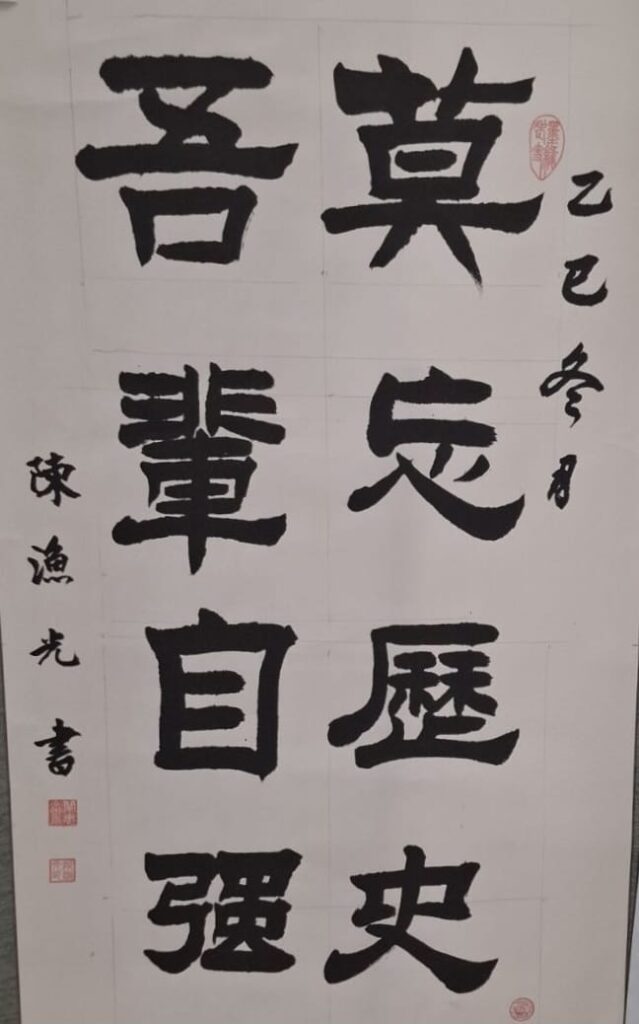 乙巳冬月
莫忘歷史
吾輩自强
陳漁光書